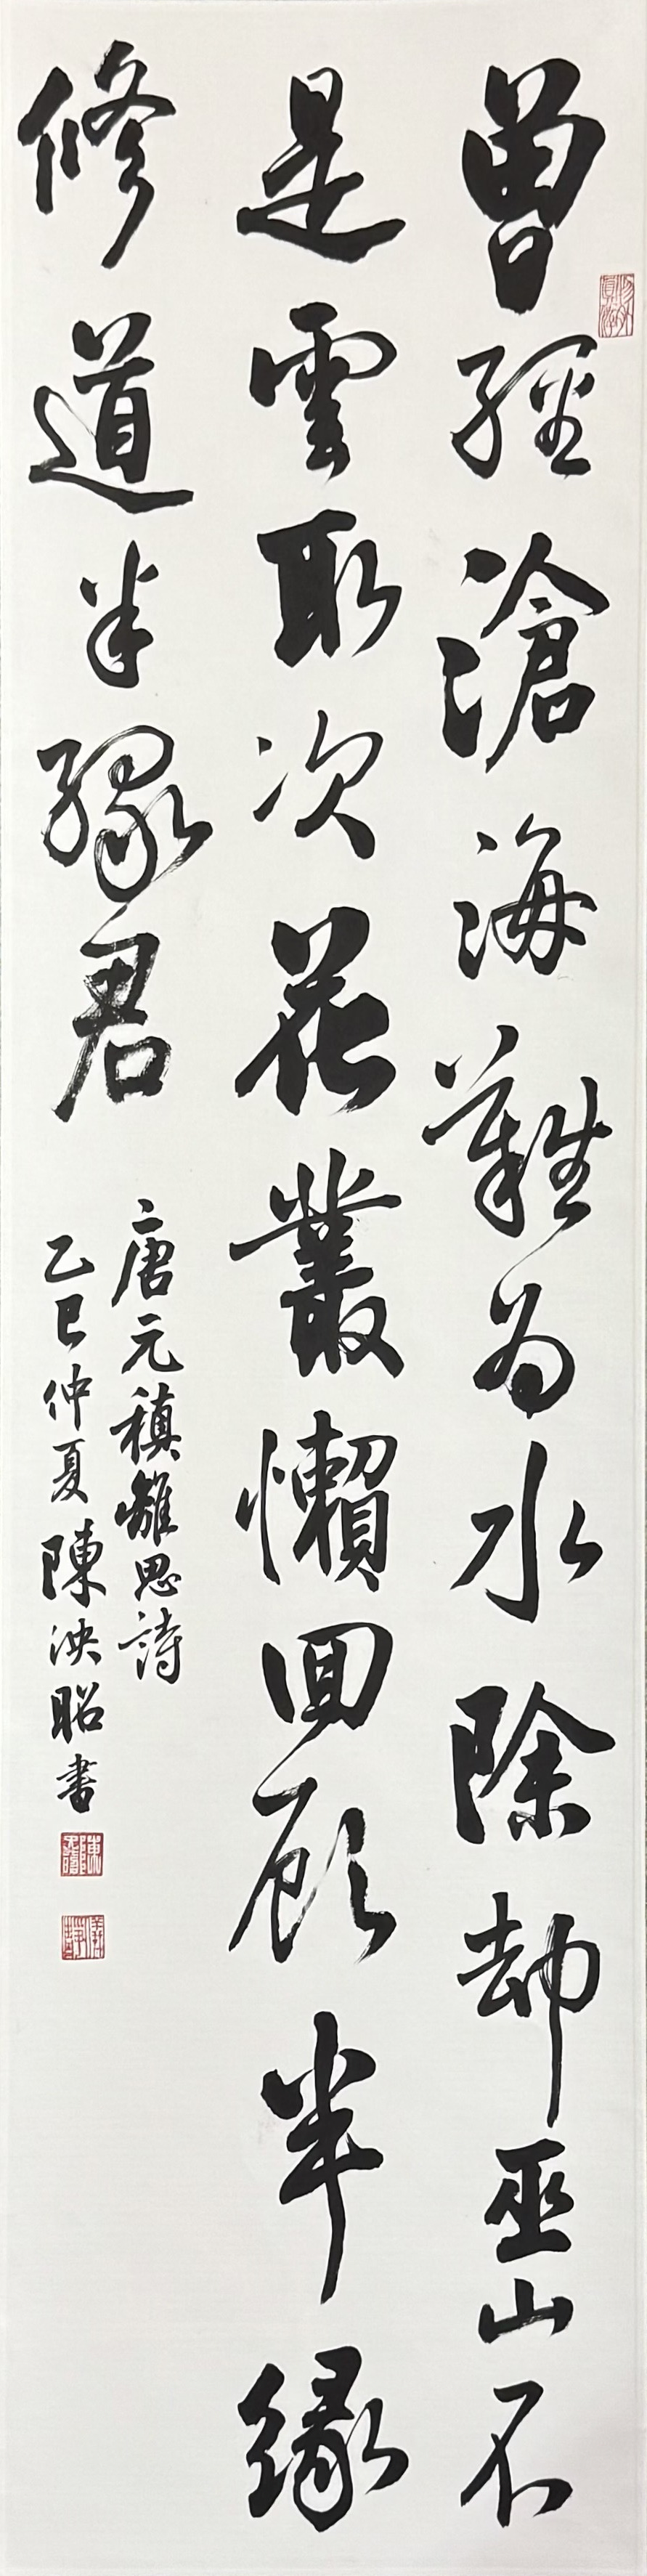 曾經滄海難為水除却巫山不
是雲取次花叢懶回顧半緣
修道半緣君
唐元稹離思詩
乙巳仲夏陳泱昭書